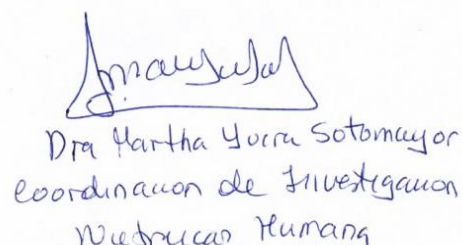 Dra Martha Yucra Sotomayor
Coordinacion de Investigacion
Nutricion Humana